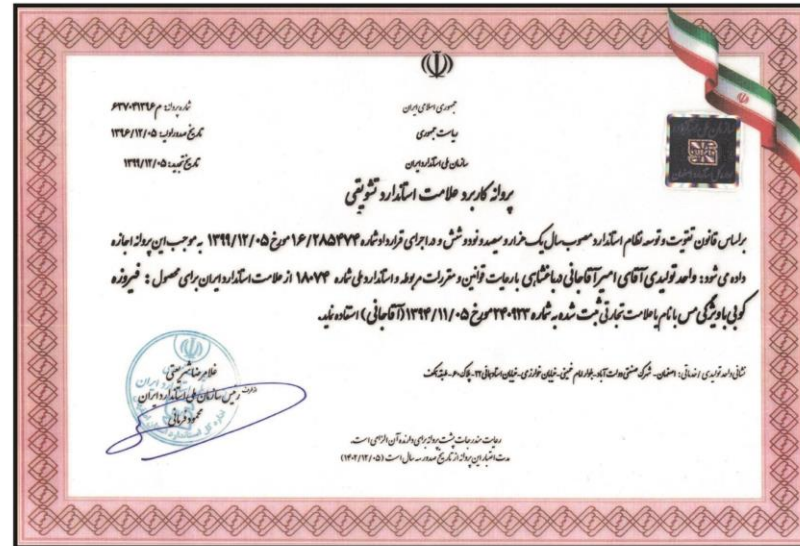 جمهوری اسلامی ایران
ریاست جمهوری
سازمان ملی استاندارد ایران
شماره پروانه: م ۶۳۷۰۴۱۳۹۶
تاریخ صدور اولیه: ۱۳۹۶/۱۲/۰۵
تاریخ تجدید: ۱۳۹۹/۱۲/۰۵
پروانه کاربرد علامت استاندارد تشویقی
براساس قانون تقویت و توسعه نظام استاندارد مصوب سال یک هزار و سیصد و نود و شش و در اجرای قرارداد شماره ۱۶/۲۸۵۴۷۴ مورخ ۱۳۹۹/۱۲/۰۵ به موجب این پروانه اجازه
داده می شود: واحد تولیدی آقای امیر آقاجانی دباغشاهی با رعایت قوانین و مقررات مربوطه و استاندارد ملی شماره ۱۸۰۷۴ از علامت استاندارد ایران برای محصول : فیروزه
کوبی با ویژگی مس با نام یا علامت تجارتی ثبت شده به شماره ۲۴۰۹۲۳ مورخ ۱۳۹۴/۱۱/۰۵ (آقاجانی) استفاده نماید.
نشانی واحد تولیدی / خدماتی: اصفهان - شهرک صنعتی دولت آباد- بلوار امام خمینی- خیابان خوارزمی- خیابان
غلامرضا شریعتی
رئیس سازمان ملی استاندارد ایران
محمود فرمانی
رعایت مندرجات پشت پروانه برای دارنده آن الزامی است
مدت اعتبار این پروانه از تاریخ صدور سه سال است (۱۴۰۲/۱۲/۰۵)